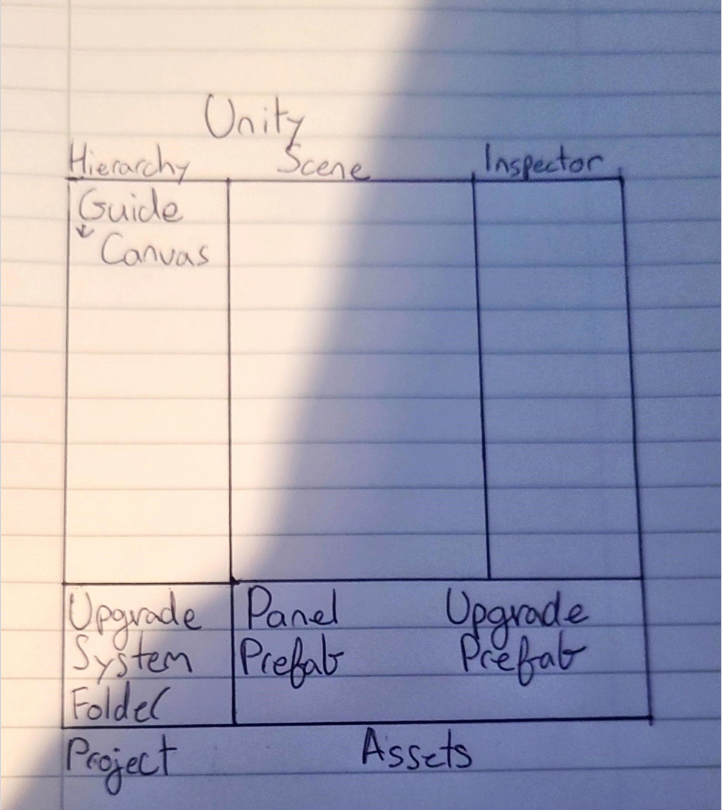 Unity
Hierarchy Scene Inspector
Guide
Canvas
Upgrade
System
Folder
Panel
Prefab
Upgrade
Prefab
Project Assets